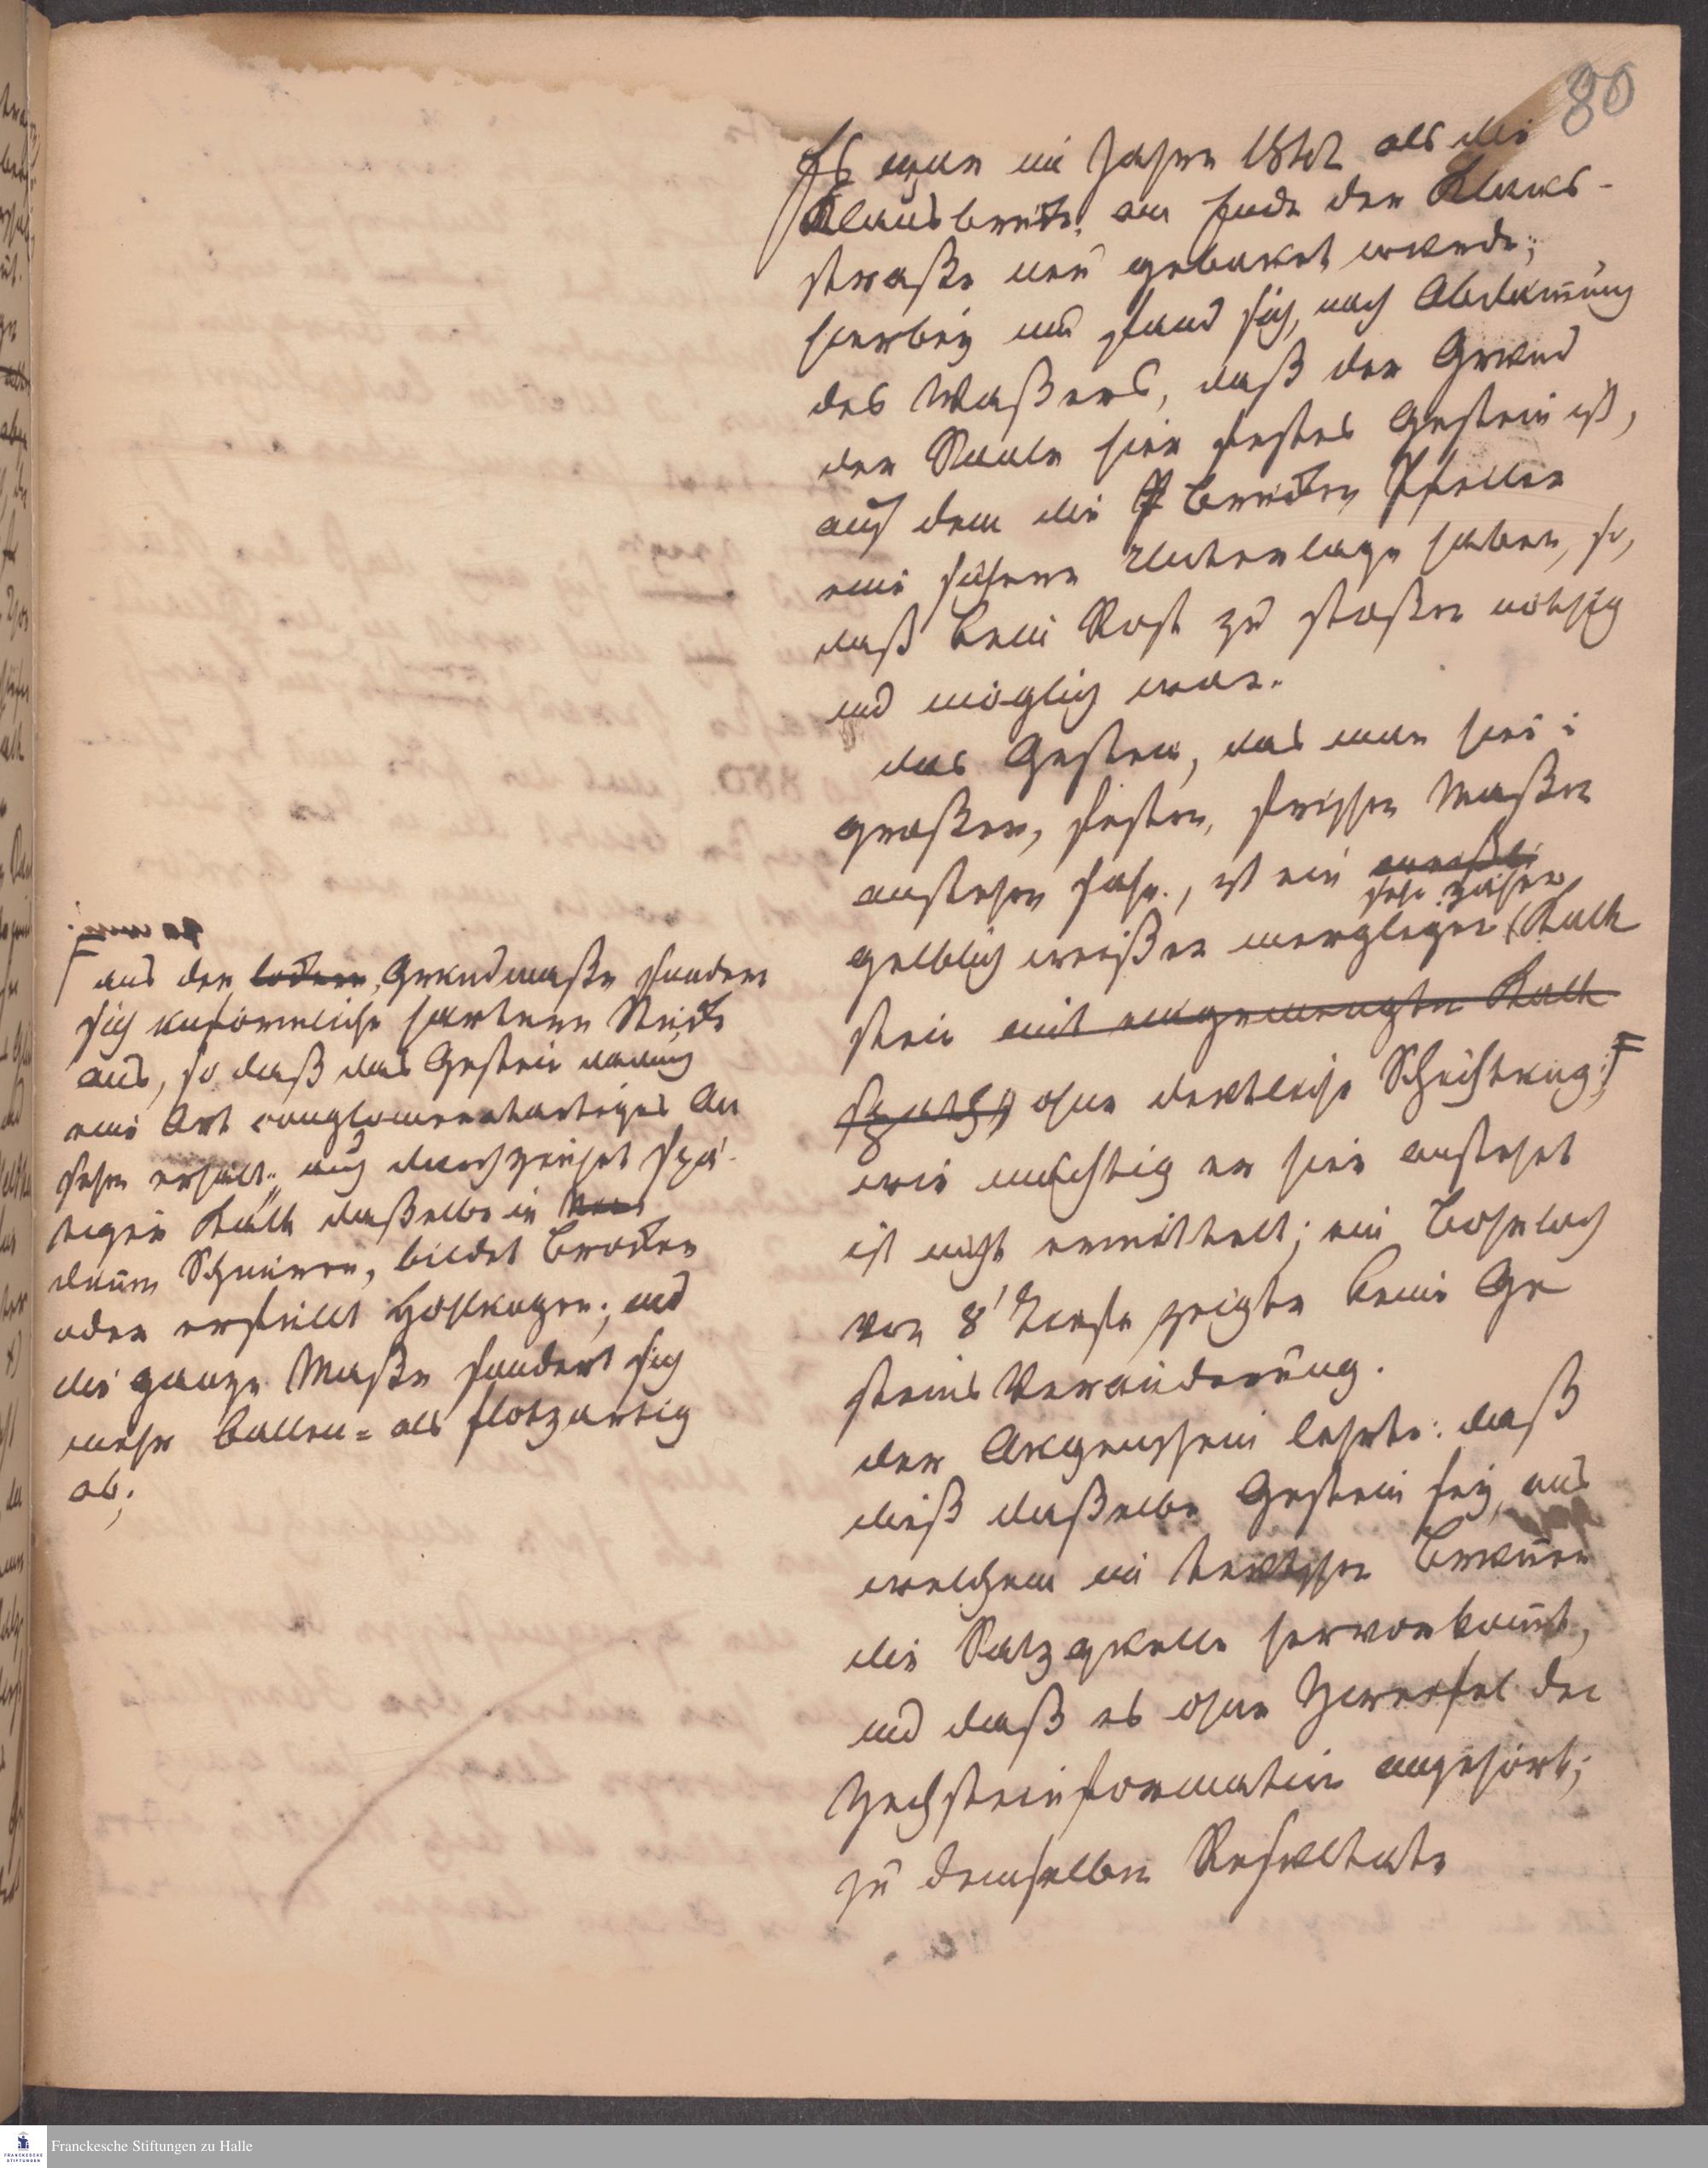 80
Es war im Jahre 18 als die
Klausbrücke, am Ende der Klaus-
straße neu gebauet wurde;
hierbey  fand sich, nach Abdämung
des Waßers, daß der Grund
der Saale hier festes Gestein ist,
auf dem die P Brücken Pfeiler
eine sichere Unterlage haben, so,
daß kein Rost zu stoßen nöthig
und möglich war.
das Gestein, das man hier i
großen, festen, frischen Maßen
anstehen sahe, ist ein
sehr zäher
gelblich weißer mergliger Kalk
stein mit eingemengten Kalk
spath, ohne deutliche Schichtung; F
wie mächtig er hier anstehet
ist nicht ermittelt; ein Bohrloch
von 8' Tiefe zeigte keine Ge
steins Veränderung.
der Augenschein lehrte: daß
dieß daßelbe Gestein sey, aus
welchem im deutschen Brunen
die Salzquelle hervorkomt,
und daß es ohne Zweifel der
Zechsteinformation angehört;
zu demselben Resultate
F aus der lockern Grundmaße sondern
sich  härtere Stücke
aus, so daß das Gestein dadurch
eine Art conglomeratartiges An
sehn erhält; auch durchziehet spä-
tiger Kalk daßelbe in
dünen Schnüren, bildet Brocken
oder erfüllt Höhlungen; und
die ganze Maße sondert sich
mehr ballen= als flötzartig
ab;
Franckesche Stiftungen zu Halle